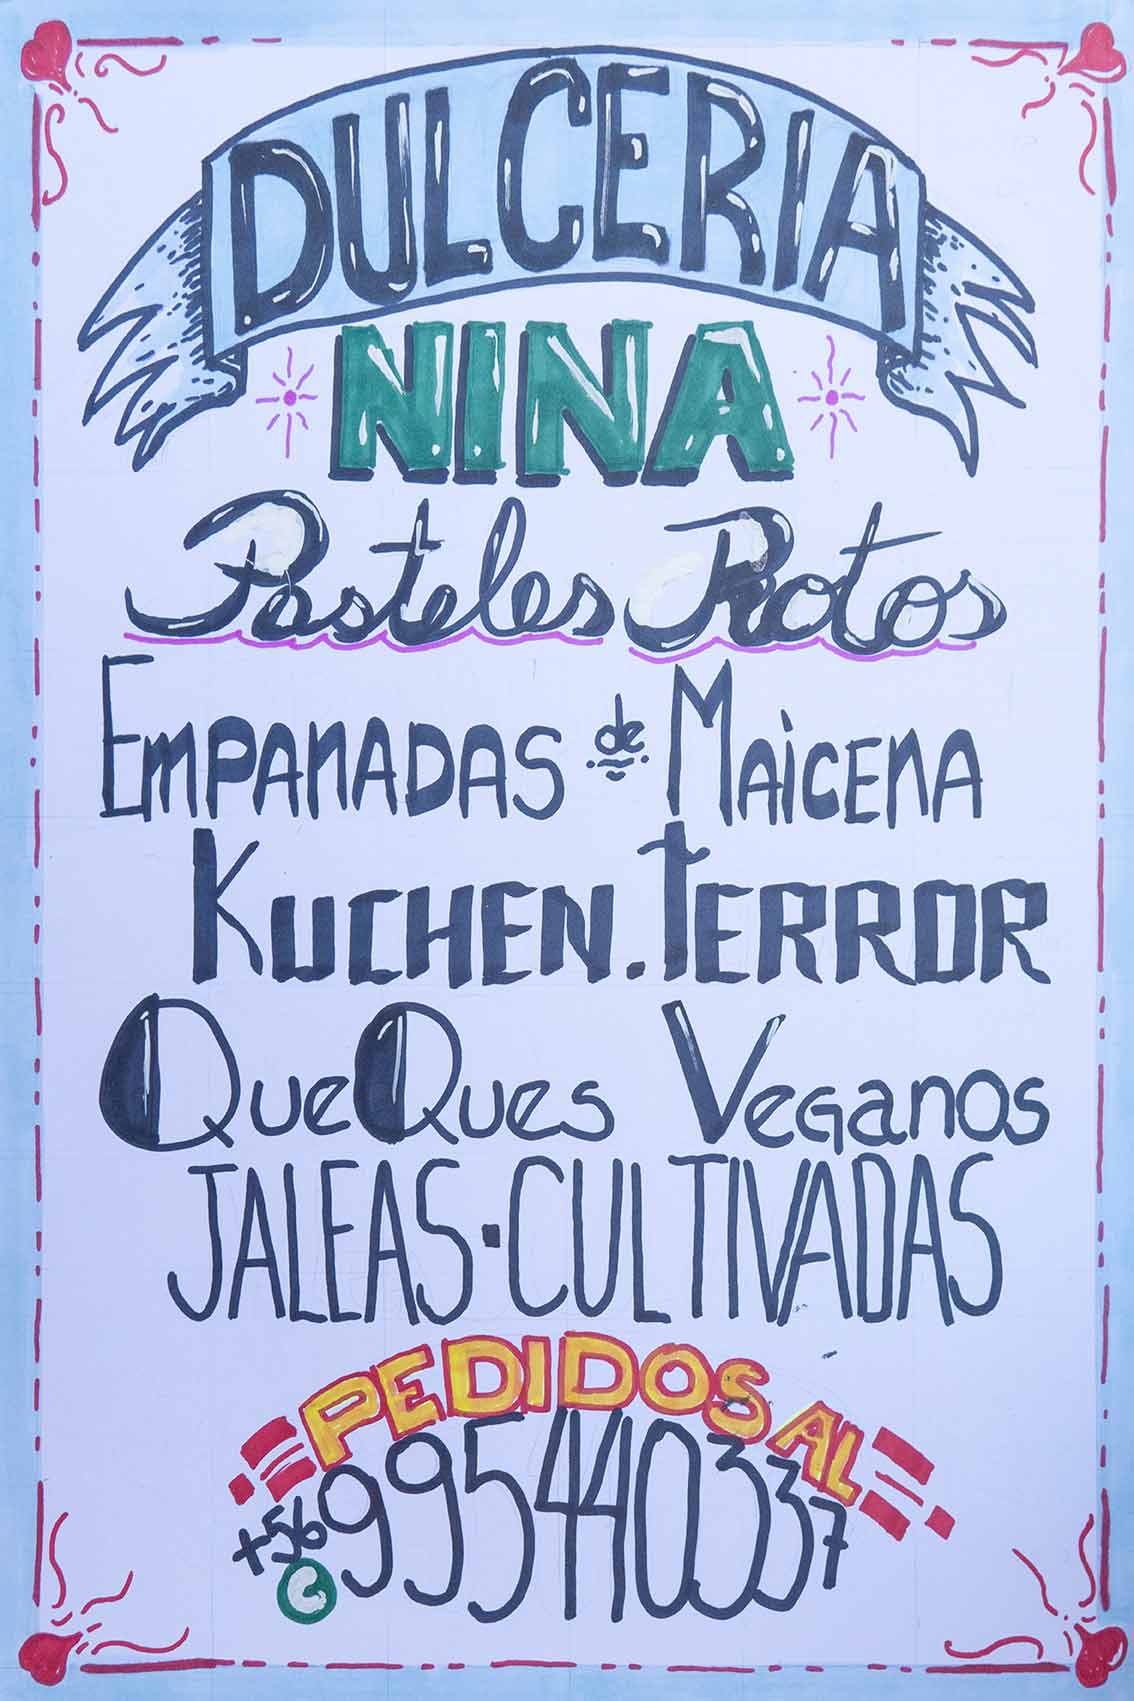 DULCERIA
NINA
Pasteles Rotos
EMPANADAS de MAICENA
KUCHEN. TERROR
QueQues Veganos
JALEAS·CULTIVADAS
PEDIDOS AL
+56 995440337